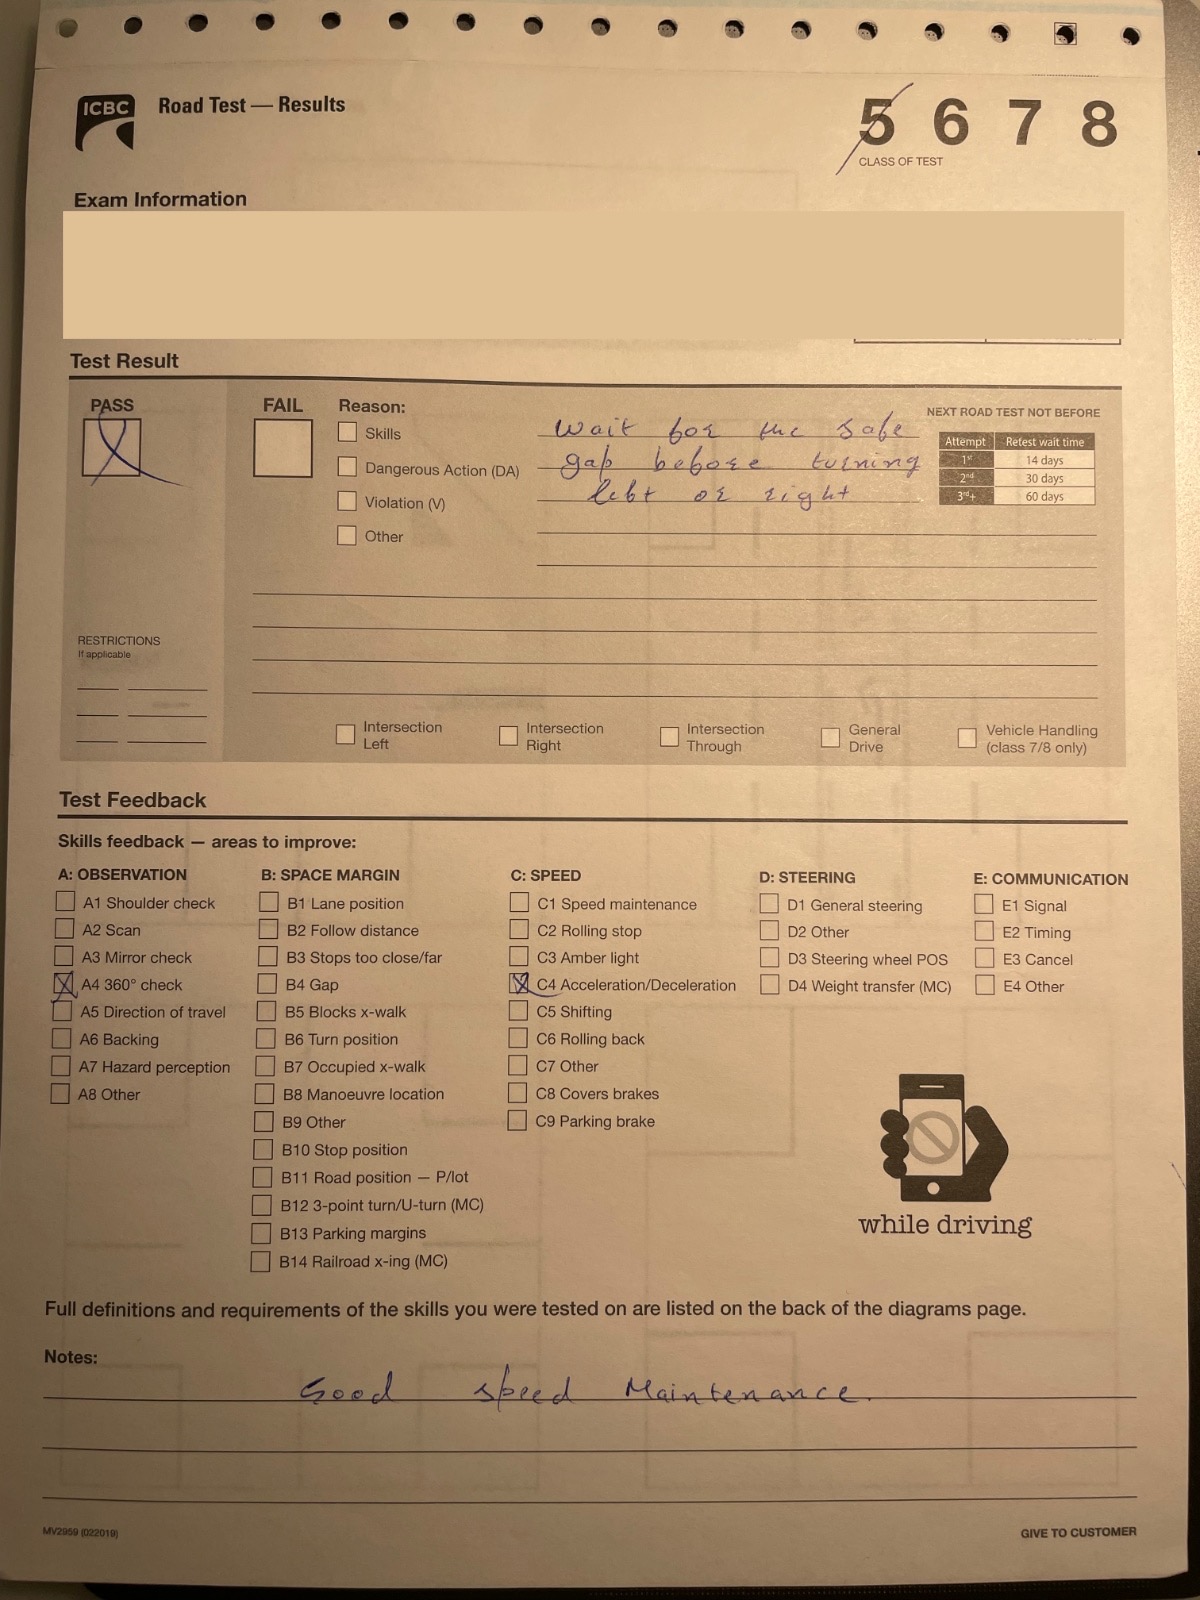 ICBC
Road Test — Results
5 6 7 8
CLASS OF TEST
Exam Information
Test Result
PASS
FAIL
Reason:
Skills
Dangerous Action (DA)
Violation (V)
Other
Wait for the safe
gap before turning
left or right
NEXT ROAD TEST NOT BEFORE
Attempt Retest wait time
1st 14 days
2nd 30 days
3rd+ 60 days
RESTRICTIONS
If applicable
Intersection Left
Intersection Right
Intersection Through
General Drive
Vehicle Handling (class 7/8 only)
Test Feedback
Skills feedback — areas to improve:
A: OBSERVATION
A1 Shoulder check
A2 Scan
A3 Mirror check
A4 360° check
A5 Direction of travel
A6 Backing
A7 Hazard perception
A8 Other
B: SPACE MARGIN
B1 Lane position
B2 Follow distance
B3 Stops too close/far
B4 Gap
B5 Blocks x-walk
B6 Turn position
B7 Occupied x-walk
B8 Manoeuvre location
B9 Other
B10 Stop position
B11 Road position — P/lot
B12 3-point turn/U-turn (MC)
B13 Parking margins
B14 Railroad x-ing (MC)
C: SPEED
C1 Speed maintenance
C2 Rolling stop
C3 Amber light
C4 Acceleration/Deceleration
C5 Shifting
C6 Rolling back
C7 Other
C8 Covers brakes
C9 Parking brake
D: STEERING
D1 General steering
D2 Other
D3 Steering wheel POS
D4 Weight transfer (MC)
E: COMMUNICATION
E1 Signal
E2 Timing
E3 Cancel
E4 Other
while driving
Full definitions and requirements of the skills you were tested on are listed on the back of the diagrams page.
Notes:
Good speed Maintenance.
MV2959 (022019)
GIVE TO CUSTOMER